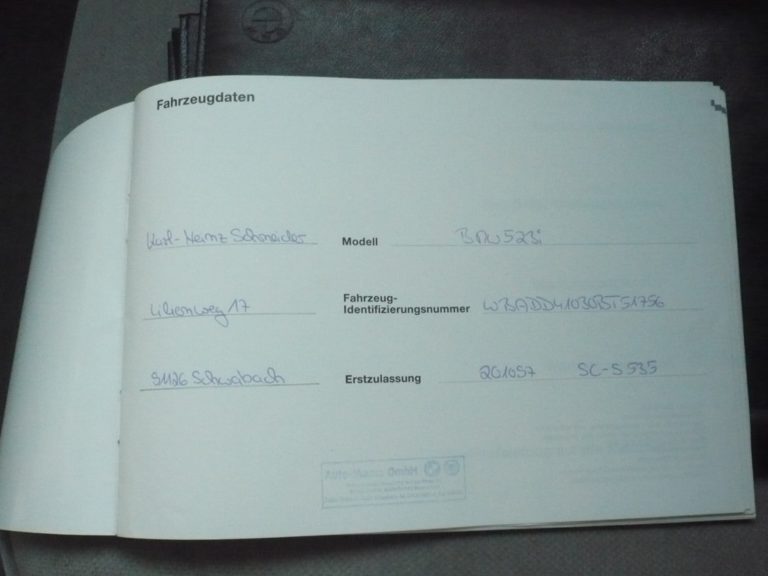 Fahrzeugdaten
Karl-Heinz Schneider Modell BMW 523i
Lilienweg 17 Fahrzeug-
Identifizierungsnummer WBADD41030BT51756
91126 Schwabach Erstzulassung 201097 SC-S 535
GmbH